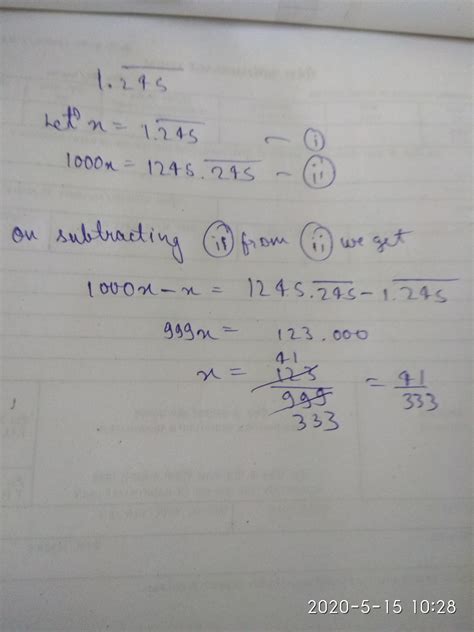 1.2̅4̅5̅
Let x = 1.2̅4̅5̅ — (i)
1000x = 1245.2̅4̅5̅ — (ii)
on subtracting (i) from (ii) we get
1000x - x = 1245.2̅4̅5̅ - 1.2̅4̅5̅
999x = 123.000
41
x = 123/999 = 41/333
333
2020-5-15 10:28